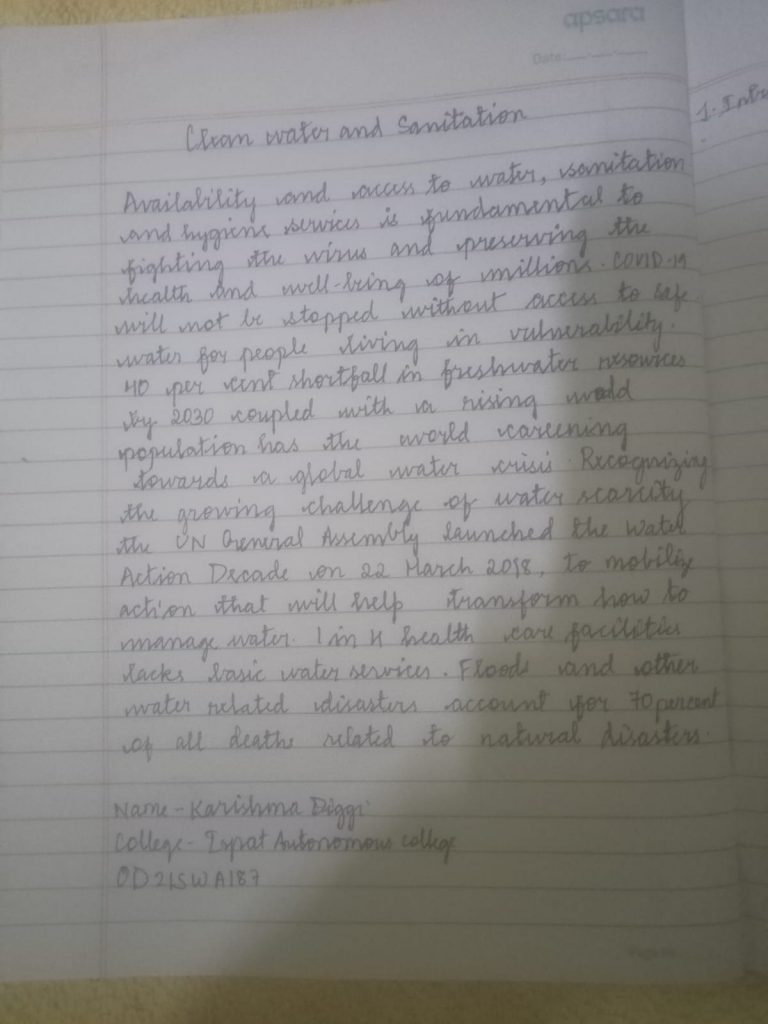 apsara
Date:
Clean water and Sanitation
1. Intr
Availability and access to water, sanitation
and hygiene services is fundamental to
fighting the virus and preserving the
health and well-being of millions. COVID-19
will not be stopped without access to safe
water for people living in vulnerability.
40 per cent shortfall in freshwater resources
by 2030 coupled with a rising world
population has the world careening
towards a global water crisis. Recognizing
the growing challenge of water scarcity
the UN General Assembly launched the Water
Action Decade on 22 March 2018, to mobilize
action that will help transform how to
manage water. 1 in 4 health care facilities
lacks basic water services. Floods and other
water related disasters account for 70 percent
of all deaths related to natural disasters.
Name - Karishma Diggi
College - Ispat Autonomous college
OD21SWA187